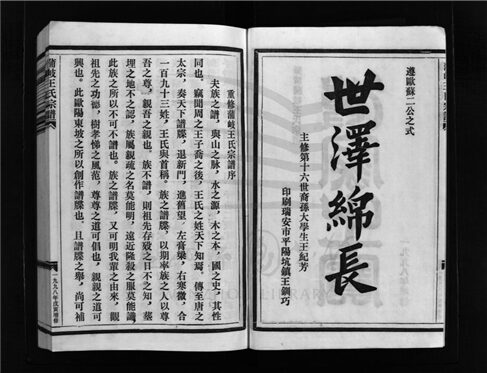 遵歐蘇二公之式
世澤綿長
主修第十六世裔孫大學生王紀芳
印刷瑞安市平陽坑鎮王鋼巧
重修蒲岐王氏宗譜序
夫族之譜，與山之脉，水之源，木之本，國之史，其性
同也。竊聞周之王子喬之後，王氏之姓天下知焉，傳至唐之
太宗，奏天下譜牒，退新門，進舊望，左膏粱，右寒微，合
一百九十三姓，王氏與首稱。族之譜牒，以期率族之人以尊
吾之尊，親吾之親也。族不譜，則祖先存歿之日不之知，墓
埋之地不之認，族屬親疏之名莫能明，遠近隆殺之服莫能識，
此族之所以不可不譜也。族之譜牒，又可明我輩之由來，觀
祖先之功德，樹孝悌之風范，尊尊之道可倡也，親親之道可
興也。此歐陽東坡之所以創作譜牒也，且譜牒之舉，尚可補
蒲岐王氏宗譜
一九九八年戊寅增修